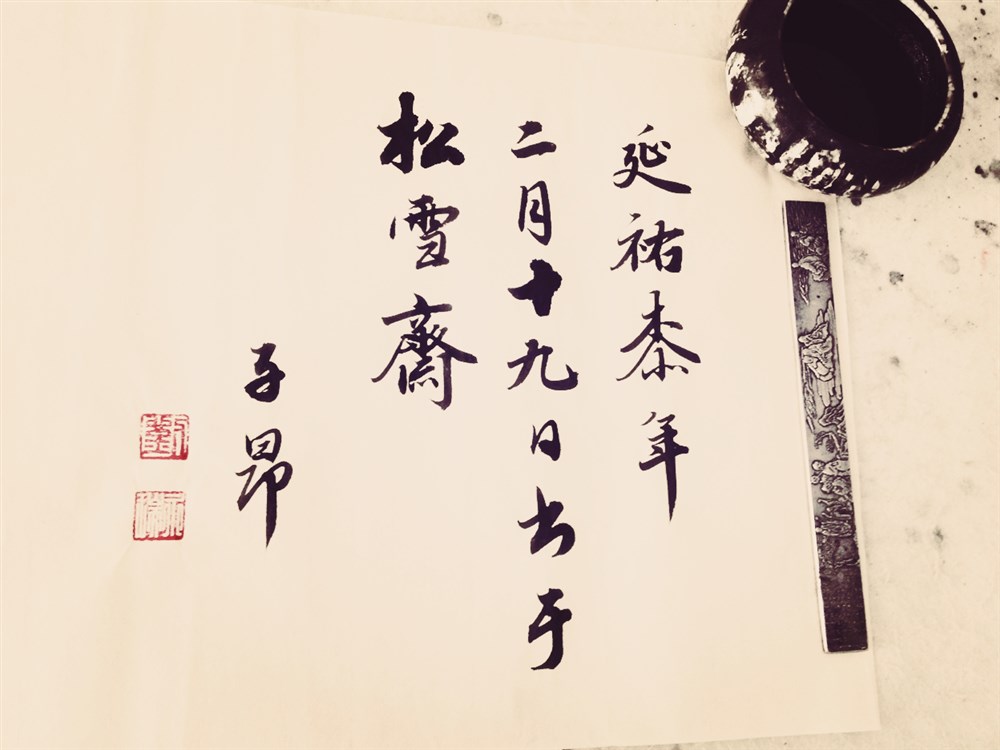 延祐桼年
二月十九日书于
松雪齋
子昂